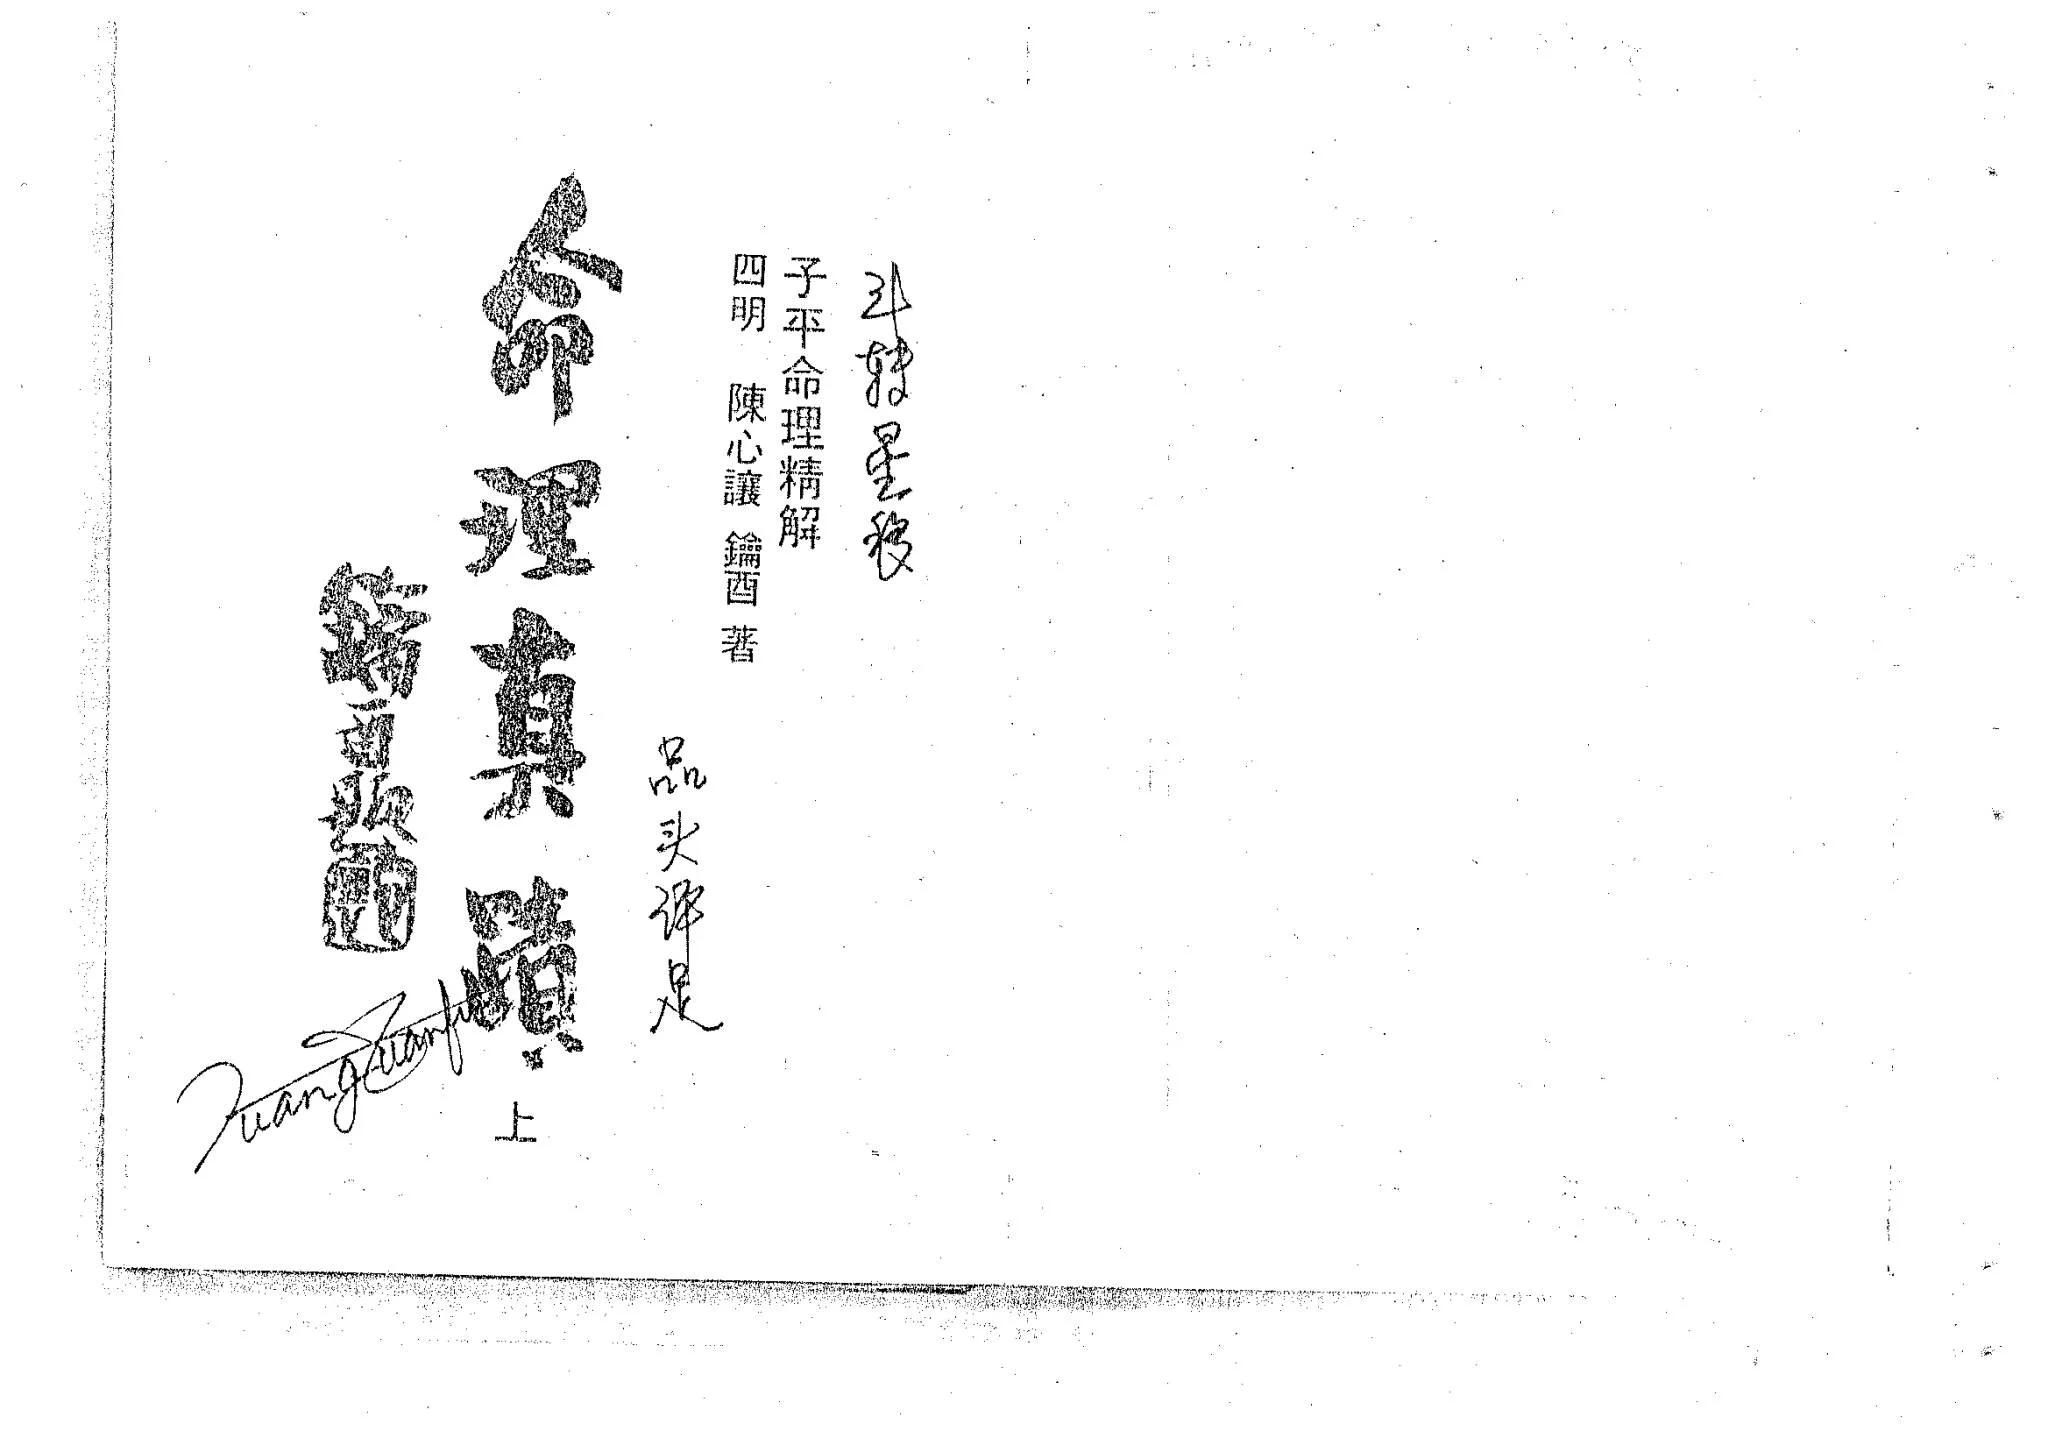 斗转星移
子平命理精解
四明 陳心讓 鑰酉 著
品头评足
命理真蹟 上